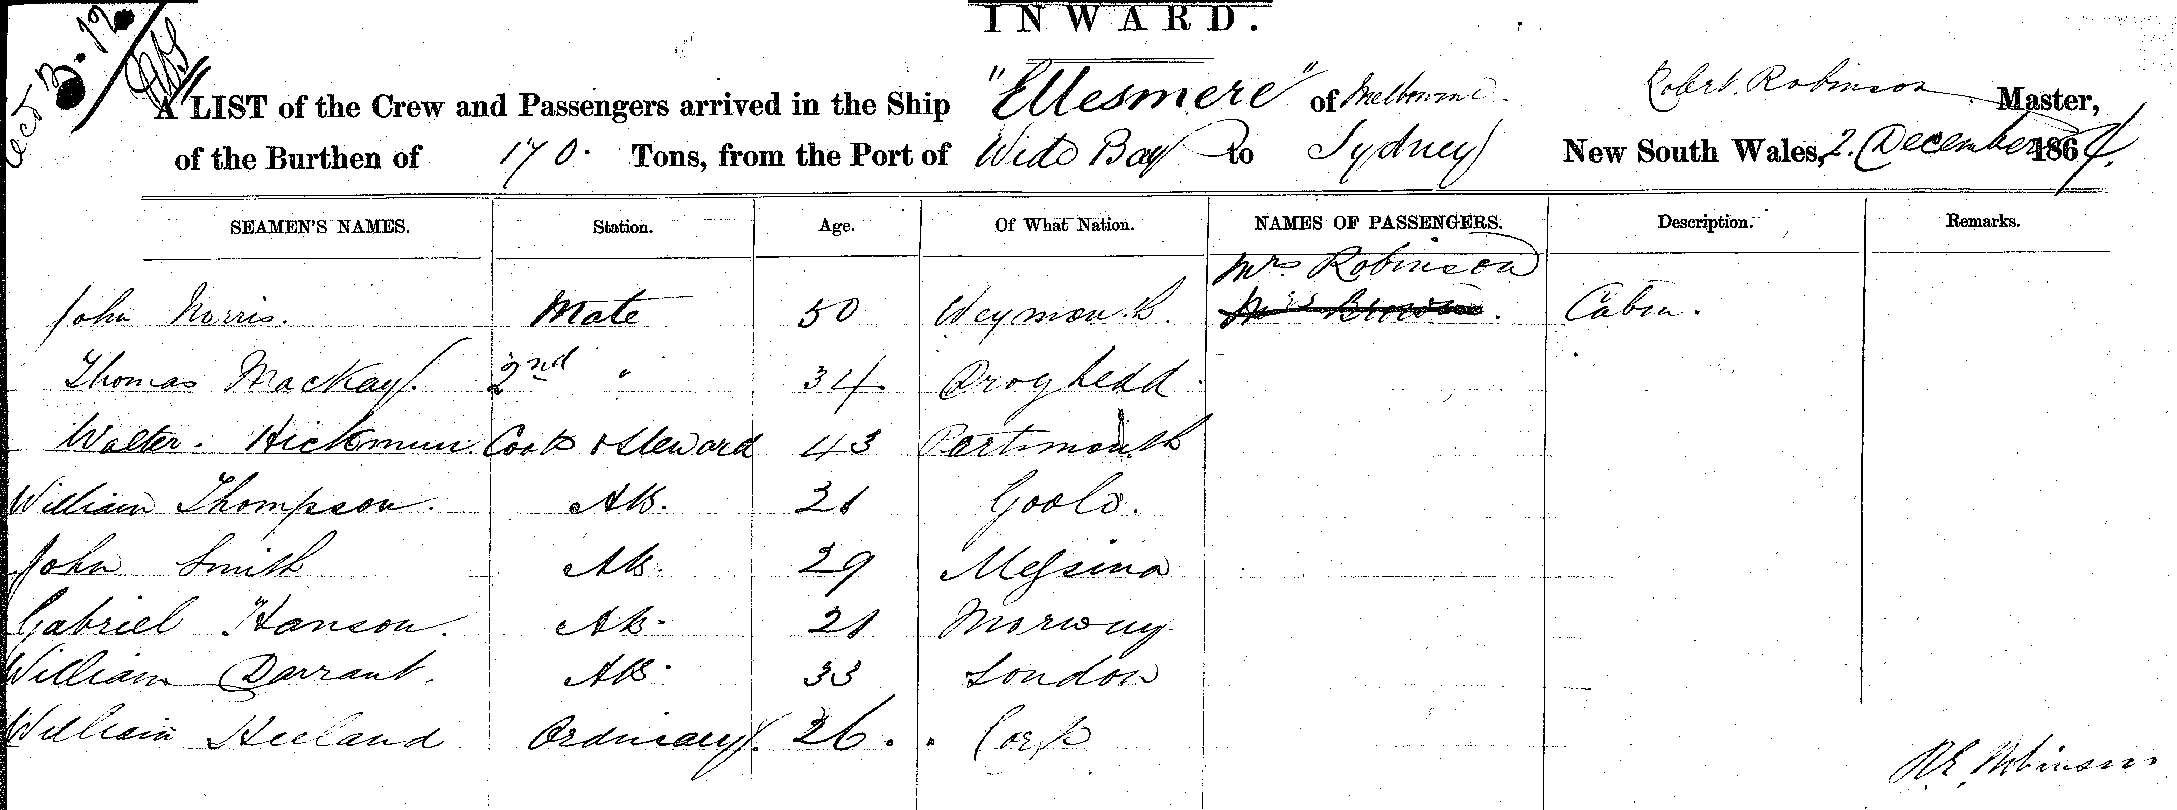 INWARD.
A LIST of the Crew and Passengers arrived in the Ship "Ellesmere" of Melbourne. Robert Robinson Master,
of the Burthen of 170. Tons, from the Port of Wide Bay to Sydney New South Wales, 2. December 1864.
SEAMEN'S NAMES. Station. Age. Of What Nation. NAMES OF PASSENGERS. Description. Remarks.
Mrs Robinson
John Norris. Mate 50 Weymouth. Cabin.
Thomas Mackay. 2nd " 34 Drogheda.
Walter. Hickman. Cook & Steward 43 Portsmouth
William Thompson. AB. 21 Goole.
John Smith AB. 29 Messina
Gabriel Hanson. AB. 21 Norway
William Darrant. AB. 33 London
William Heeland Ordinary. 26. Cork
R. Robinson